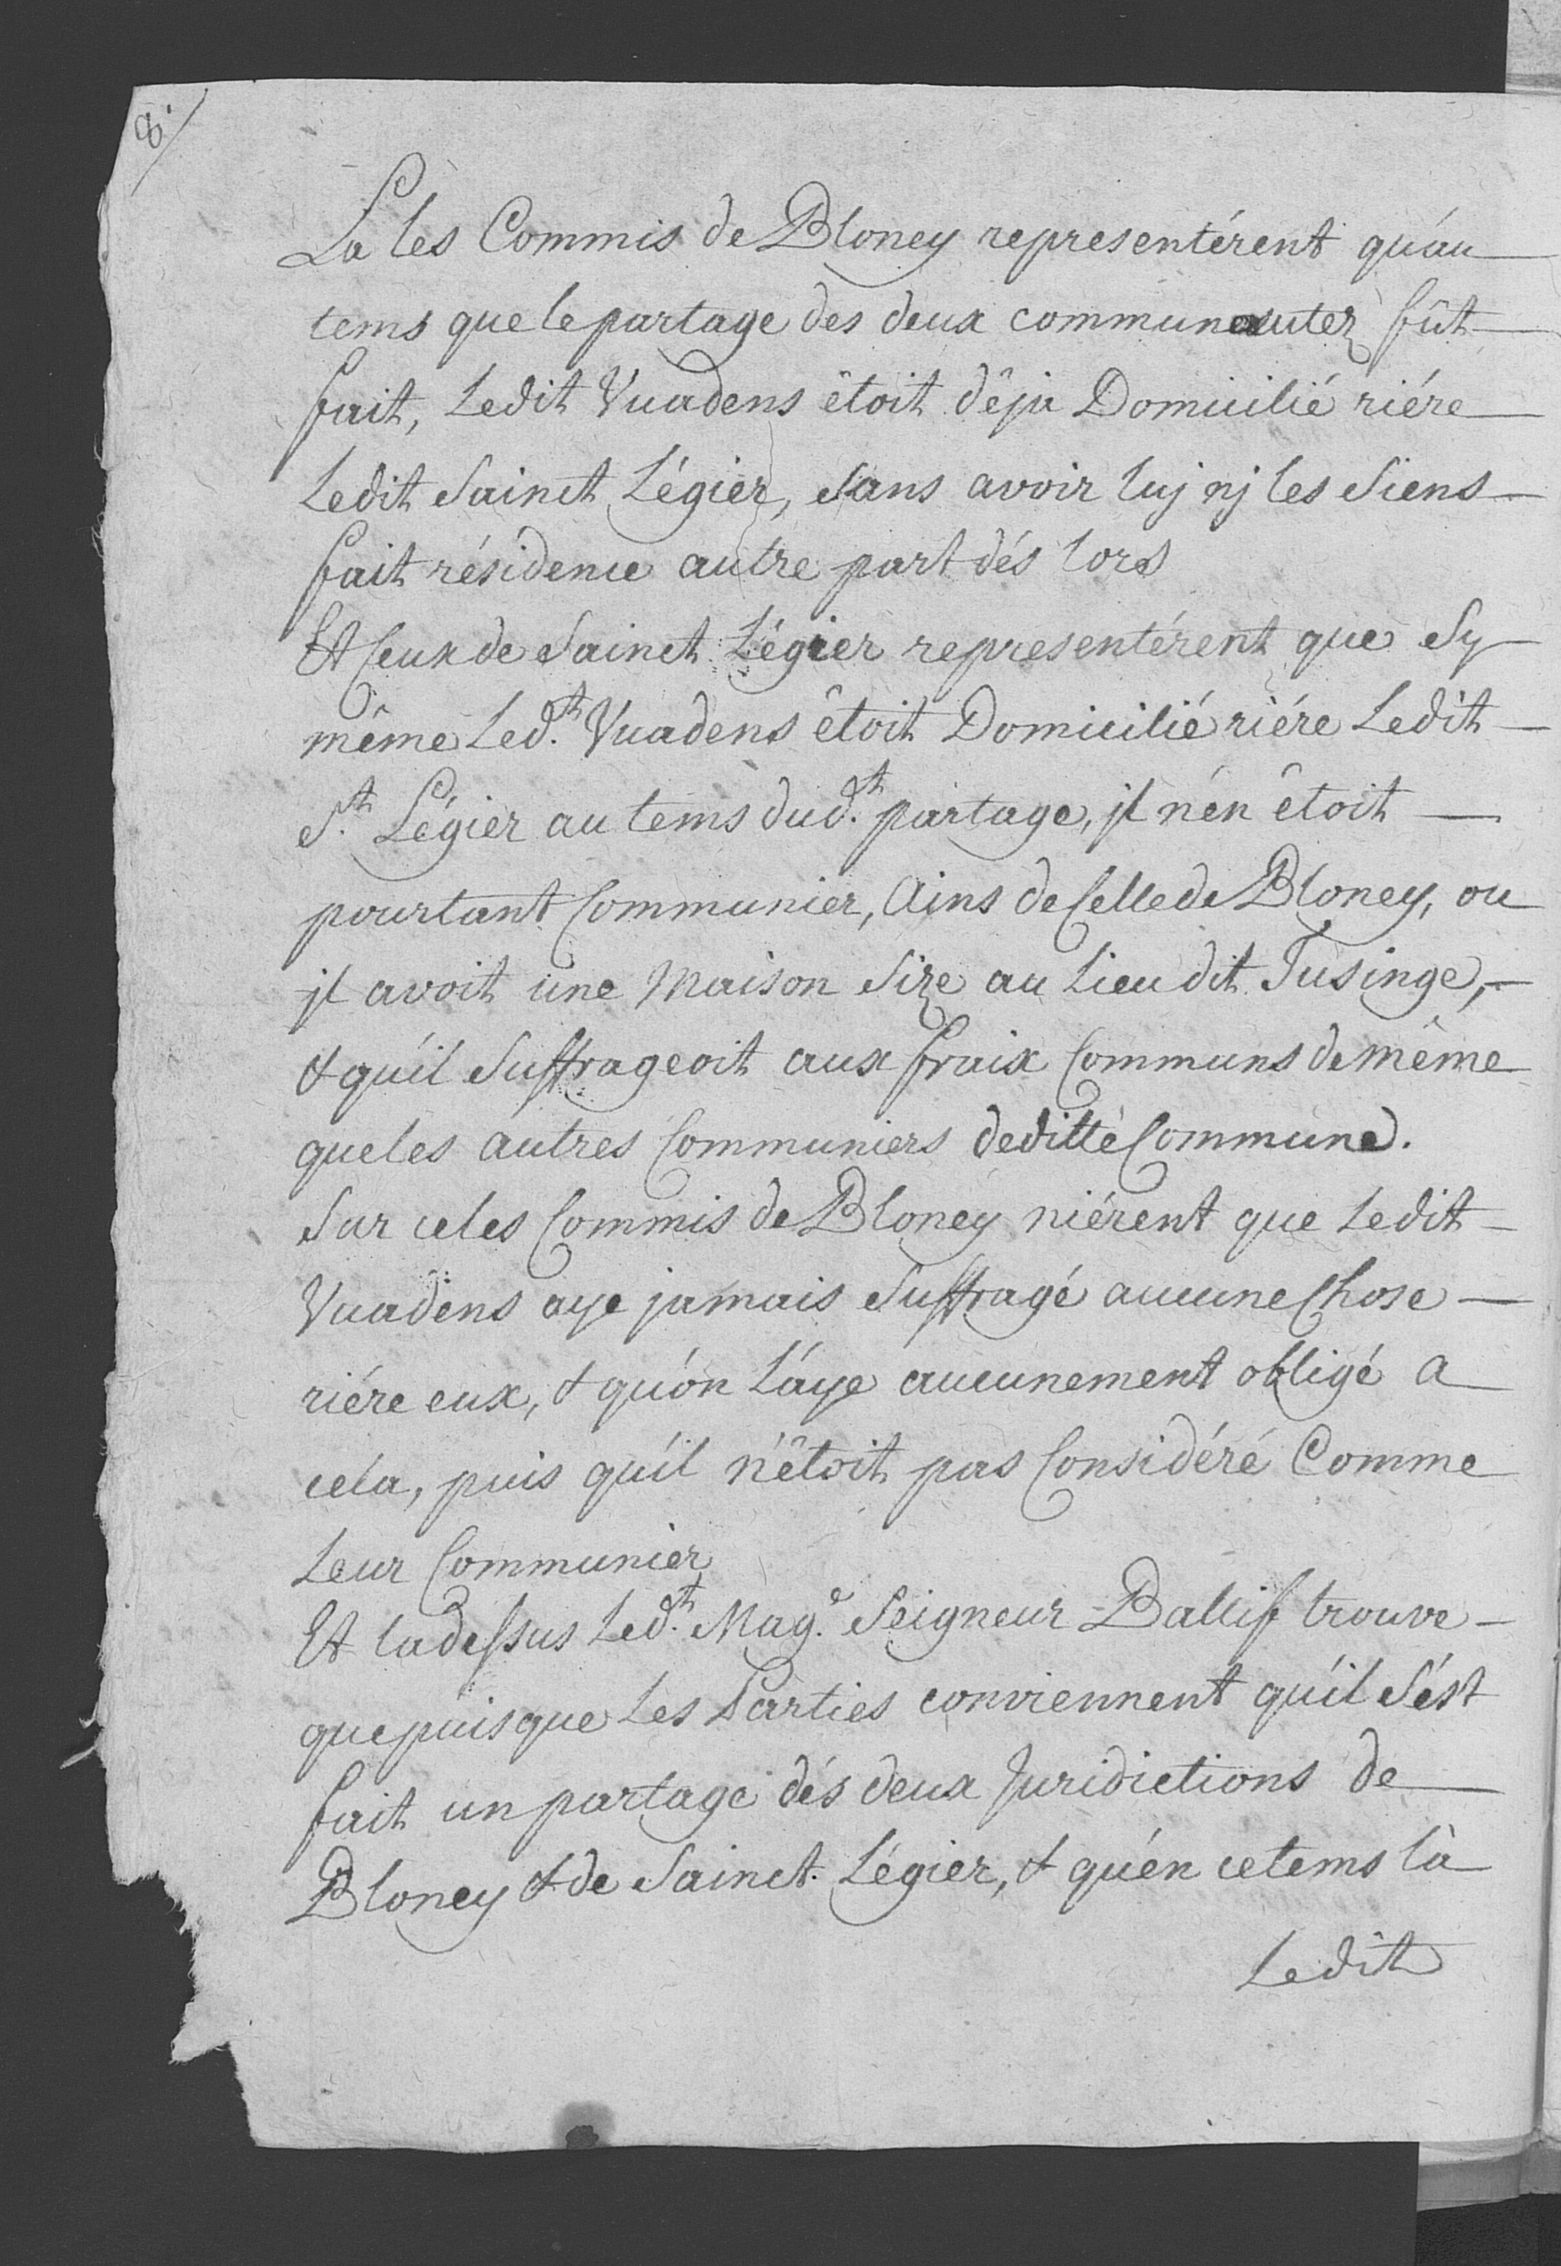 8.
La les Commis de Bloney representérent qu'au
tems que le partage des deux communautez fût
fait, Ledit Vuadens êtoit dêja Domicilié riére
Ledit Sainct Légier, Sans avoir luj nj les Siens
fait résidence autre part dés lors
Et Ceux de Sainct Légier representérent que Sy
même Led.t Vuadens êtoit Domicilié riére Ledit
S.t Légier au tems dud.t partage, jl n'én êtoit
pourtant Communier, Ains de Celle de Bloney, ou
jl avoit une Maison Size au Lieu dit Tusinge,
& qu'il Suffrageoit aux fraix Communs de même
que les autres Communiers deditte Commune.
Sur ce les Commis de Bloney niérent que Ledit
Vuadens aye jamais Suffragé aucune Chose
riére eux, & qu'on L'aye aucunement obligé a
cela, puis qu'il n'êtoit pas Considéré Comme
Leur Communier
Et la dessus Led.t Mag.e Seigneur Ballif trouve
que puisque Les Parties conviennent qu'il S'ést
fait un partage dés deux Juridictions de
Bloney & de Sainct Légier, & qu'én ce tems là
Ledit